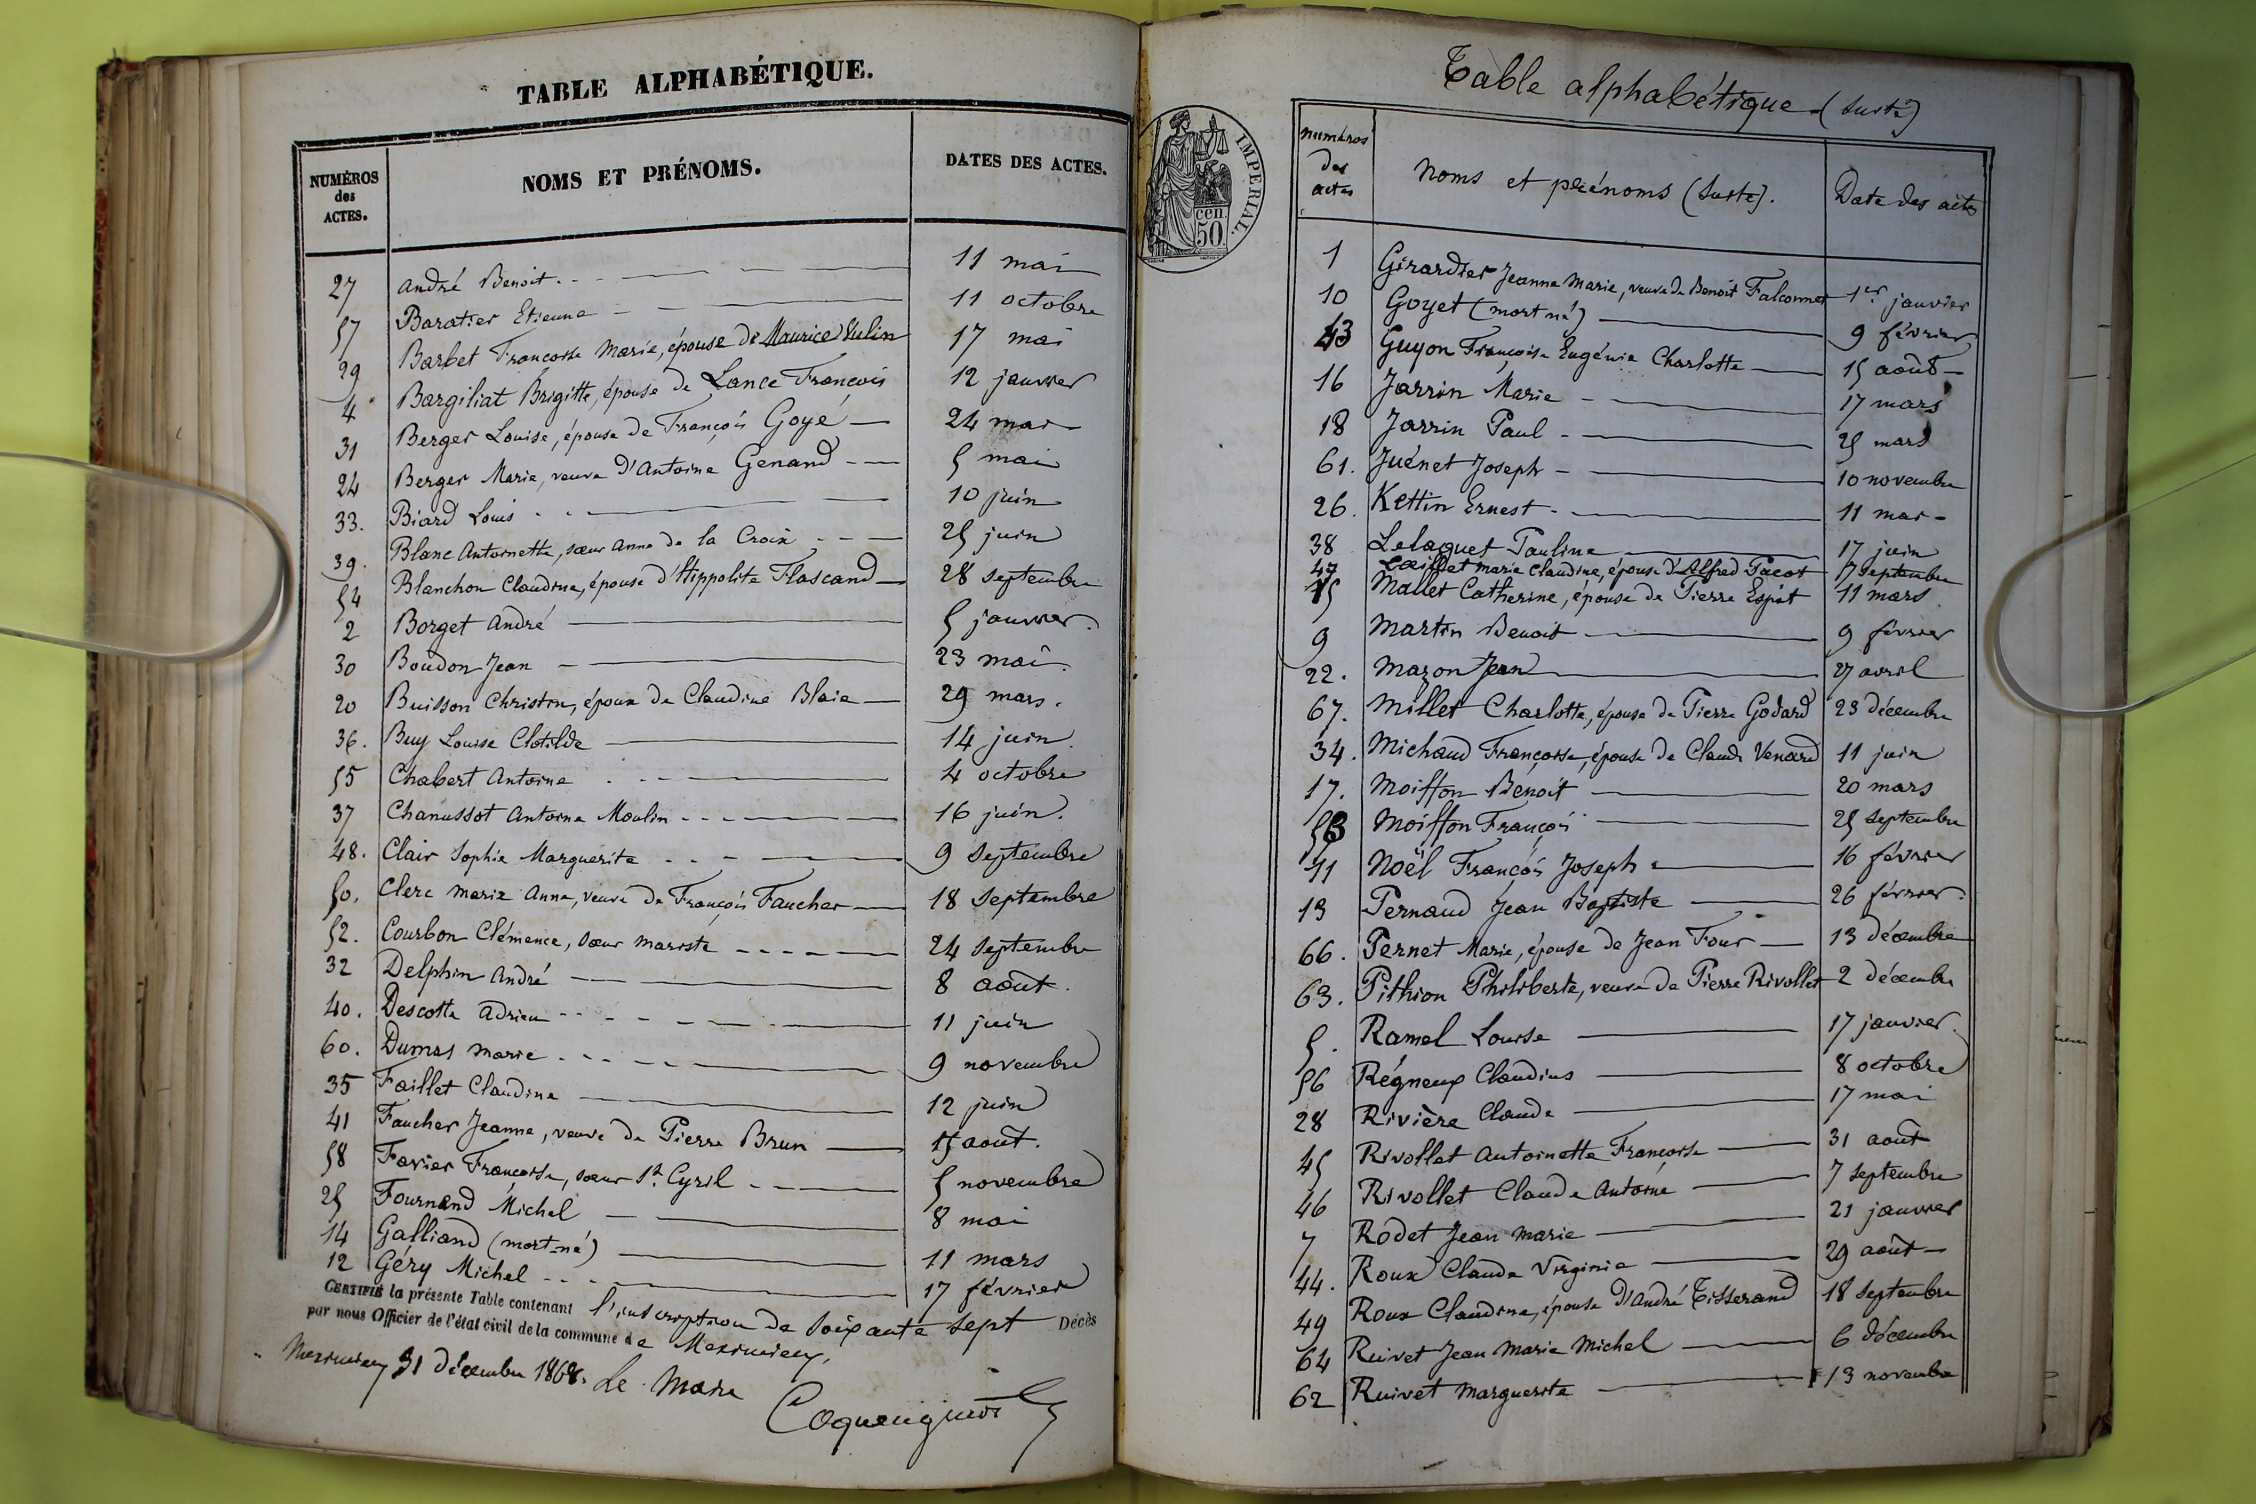 TABLE ALPHABÉTIQUE.
NUMÉROS des ACTES.
NOMS ET PRÉNOMS.
DATES DES ACTES.
27 André Benoit 11 mai
57 Baratier Etienne 11 octobre
29 Barbet Françoise Marie, épouse de Maurice Julin 17 mai
4 Bargiliat Brigitte, épouse de Lance François 12 janvier
31 Berger Louise, épouse de François Goyé 24 mai
24 Berger Marie, veuve d'Antoine Genand 5 mai
33. Biard Louis 10 juin
39. Blanc Antoinette, sœur Anne de la Croix 25 juin
54 Blanchon Claudine, épouse d'Hippolite Flascand 28 septembre
2 Borget André 5 janvier.
30 Boudon Jean 23 mai.
20 Buisson Christin, époux de Claudine Blaie 29 mars.
36. Buy Louise Clotilde 14 juin.
55 Chabert Antoine 4 octobre
37 Chanussot Antoine Moulin 16 juin.
48. Clair Sophie Marguerite 9 septembre
50. Clerc Marie Anne, veuve de François Faucher 18 septembre
52. Courbon Clémence, sœur mariste 24 septembre
32 Delphin André 8 août.
40. Descotte Adrien 11 juin
60. Dumas Marie 9 novembre
35 Faillet Claudine 12 juin
41 Faucher Jeanne, veuve de Pierre Brun 15 août.
58 Favier Françoise, sœur St. Cyril 5 novembre
25 Fournand Michel 8 mai
14 Galliand (mort-né) 11 mars
12 Géry Michel 17 février
CERTIFIÉ la présente Table contenant l'inscription de soixante sept Décès
par nous Officier de l'état civil de la commune de Meximieux,
Meximieux 31 décembre 1868. Le Maire
IMPERIAL.
50 cen.
Table alphabétique (suite)
Numéros des actes
Noms et prénoms (suite).
Date des actes
1 Girardier Jeanne Marie, veuve de Benoit Falconnet 1er janvier
10 Goyet (mort né) 9 février
43 Guyon Françoise Eugénie Charlotte 15 août
16 Jarrin Marie 17 mars
18 Jarrin Paul 25 mars
61. Juénet Joseph 10 novembre
26. Kettin Ernest 11 mai
38 Lelaquet Pauline 17 juin
47 Lœillet Marie Claudine, épouse d'Alfred Pacot 17 septembre
15 Mallet Catherine, épouse de Pierre Espit 11 mars
9 Martin Benoit 9 février
22. Mazon Jean 27 avril
67. Millet Charlotte, épouse de Pierre Godard 23 décembre
34. Michaud Françoise, épouse de Claude Venard 11 juin
17. Moiffon Benoit 20 mars
53 Moiffon François 25 septembre
11 Noël François Joseph 16 février
13 Pernaud Jean Baptiste 26 février.
66. Pernet Marie, épouse de Jean Four 13 décembre
63. Pithion Philiberte, veuve de Pierre Rivollet 2 décembre
5. Ramel Louise 17 janvier.
56 Régneux Claudius 8 octobre
28 Rivière Claude 17 mai
45 Rivollet Antoinette Françoise 31 août
46 Rivollet Claude Antoine 7 septembre
7 Rodet Jean Marie 21 janvier
44. Roux Claude Virginie 29 août
49 Roux Claudine, épouse d'André Tisserand 18 septembre
64 Ruivet Jean Marie Michel 6 décembre
62 Ruivet Marguerite 13 novembre